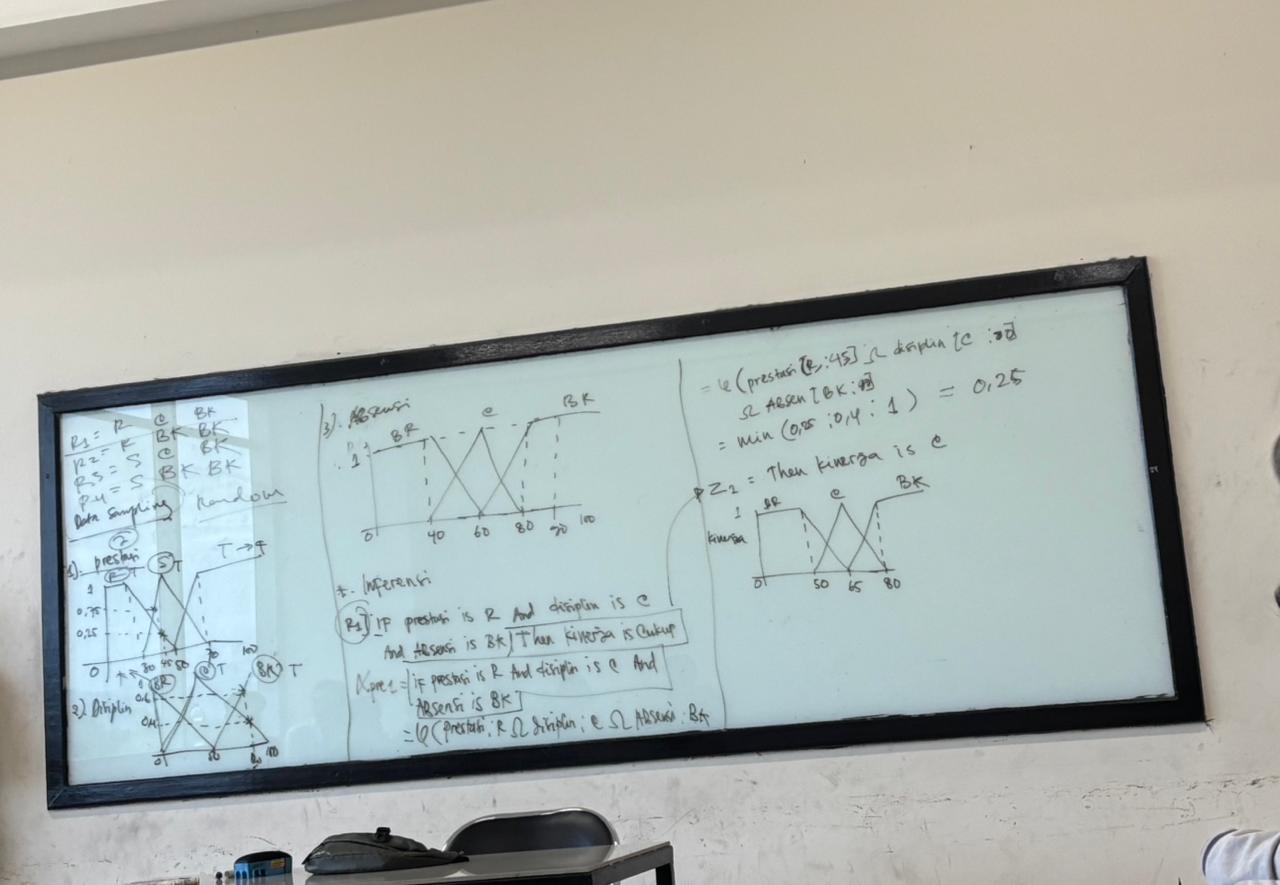 R1 = R C BK
R2 = R BK BK
R3 = S C BK
R4 = S BK BK
Data Sampling Random
1). prestasi
R S T T
1
0,75
0,25
0 30 45 50 70 100
2). Disiplin
BR C T BK T
1
0,6
0,4
0 50 80 100
3). Absensi
BR C BK
1
0 40 60 80 90 100
*. Inferensi
R1] IF prestasi is R And disiplin is C
And Absensi is BK] Then kinerja is Cukup
αpre1 = [if prestasi is R And disiplin is C And
Absensi is BK]
= (prestasi; R Ω disiplin; C Ω Absensi; BK
= (prestasi [R; 45] Ω disiplin [C
Ω Absen [BK
= min (0,25 ; 0,4 ; 1) = 0,25
= Then kinerja is C
1 BR C BK
kinerja
0 50 65 80